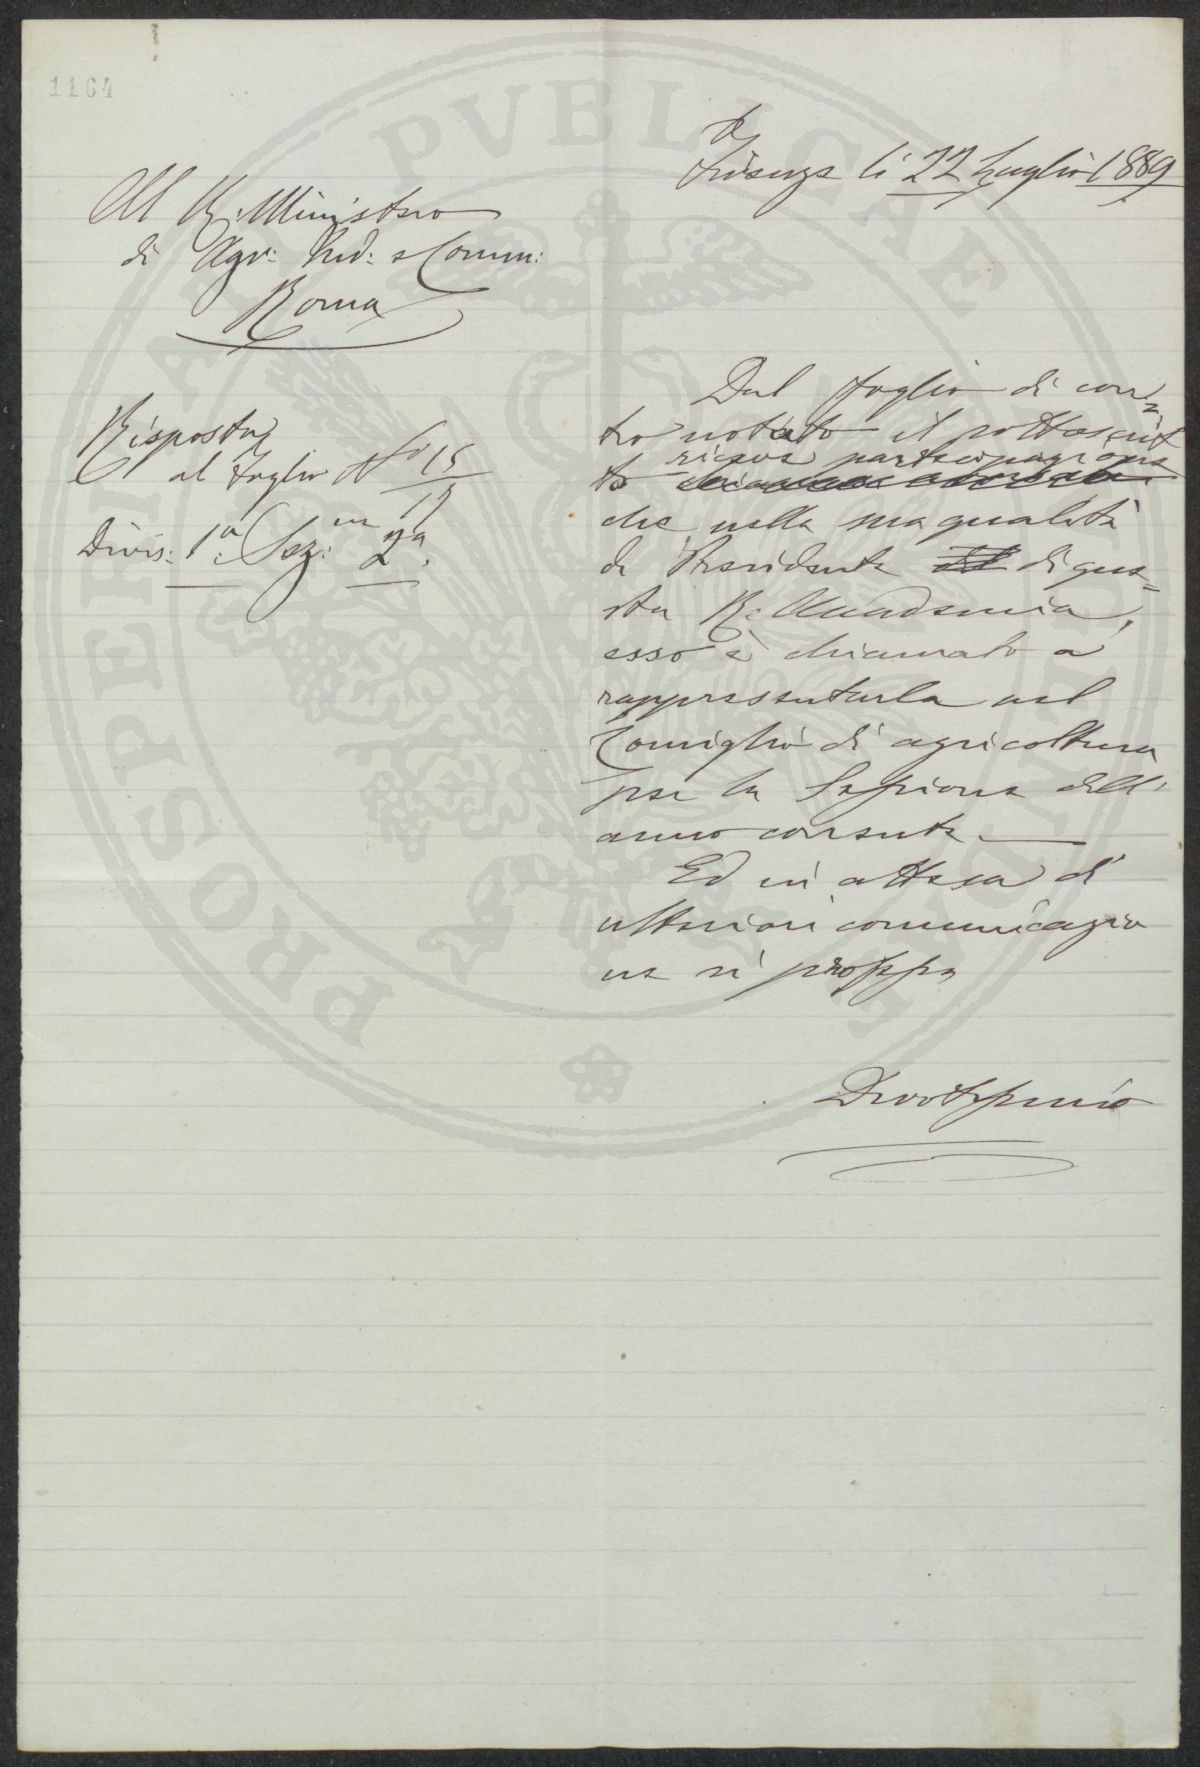 1164
Firenze li 22 Luglio 1889
Al R. Ministero
di Agr: Ind: e Comm:
Roma
Risposta
al foglio N° 15
17
Divis: 1ª Sez: 2ª.
Dal foglio di con=
tro notato il sottoscrit
to
riceve partecipazione
che nella sua qualità
di Presidente di que=
sta R. Accademia,
esso è chiamato a
rappresentarla nel
Consiglio di agricoltura
per la Sessione dell'
anno corrente.
Ed in attesa di
ulteriori comunicazio
ne si
Devotissimo
PROSPERITATI PVBLICAE AVGENDAE